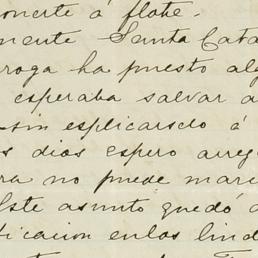 onerte á flote.
mente Santa Cata
roga ha puesto alg
esperaba salvar a
sin esplicarselo á
s dias espero arreg
ra no puede mar
Este asunto quedó a
ficacion en los lind